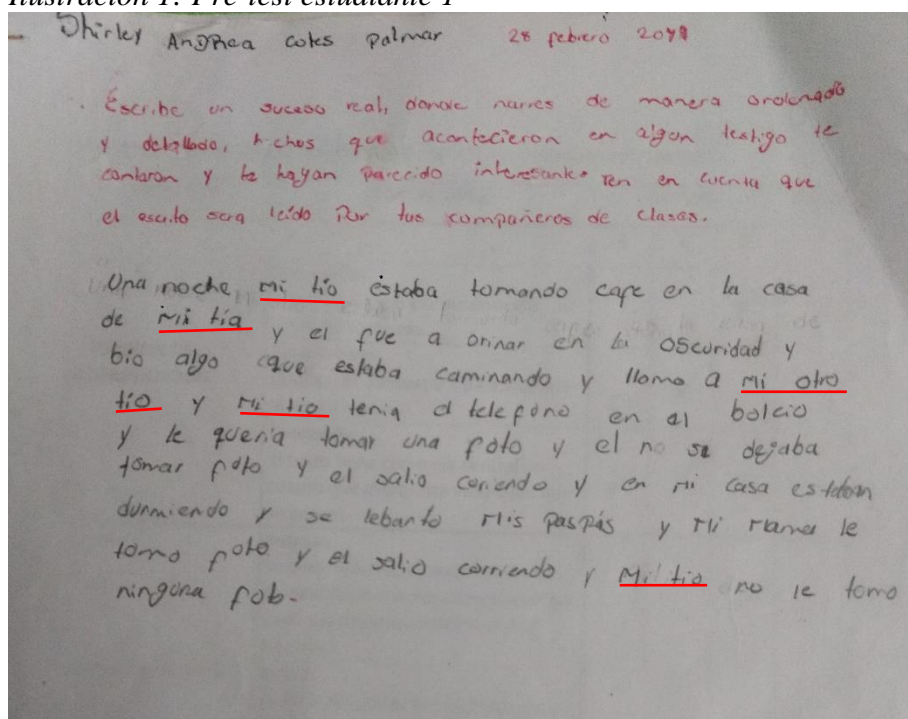 Ilustración 1: Pre test estudiante 1
Shirley AnDRea cotes palmar 28 febrero
Escribe un suceso real, donde narres de manera ordenada
y detallado, hechos que acontecieron en algun testigo te
contaron y te hayan parecido interesante. Ten en cuenta que
el escrito sera leído Por tus compañeros de clases.
Una noche mi tío estaba tomando cafe en la casa
de mi tía y el fue a orinar en la oscuridad y
bio algo que estaba caminando y llamo a mi otro
tío y mi tio tenia el telefono en el bolcio
y le queria tomar una foto y el no se dejaba
tomar foto y el salio coriendo y en mi casa estaban
durmiendo y se lebanto mis paspás y mi mama le
tomo foto y el salio corriendo y mi tio no le tomo
ningúna